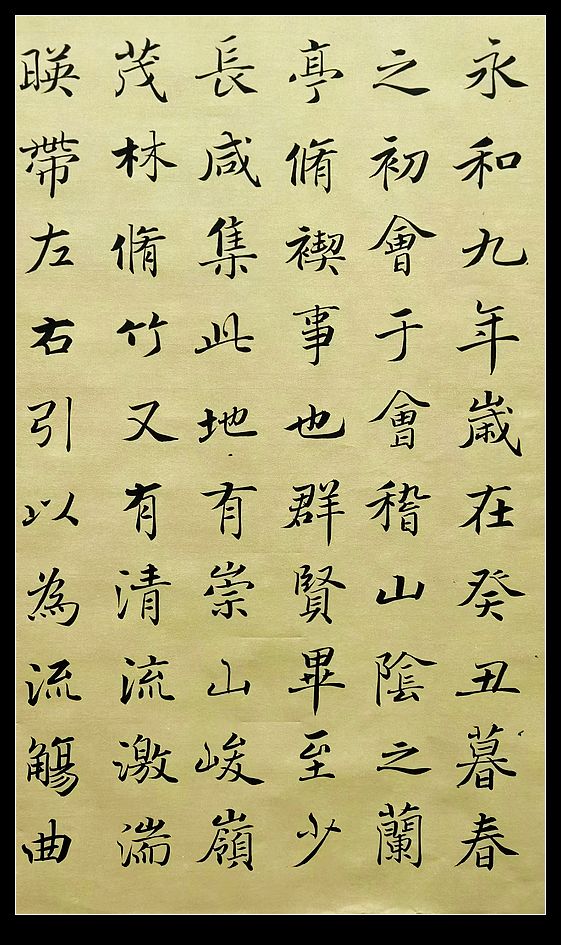 永和九年歲在癸丑暮春
之初會于會稽山陰之蘭
亭脩禊事也群賢畢至少
長咸集此地有崇山峻嶺
茂林脩竹又有清流激湍
暎帶左右引以為流觴曲